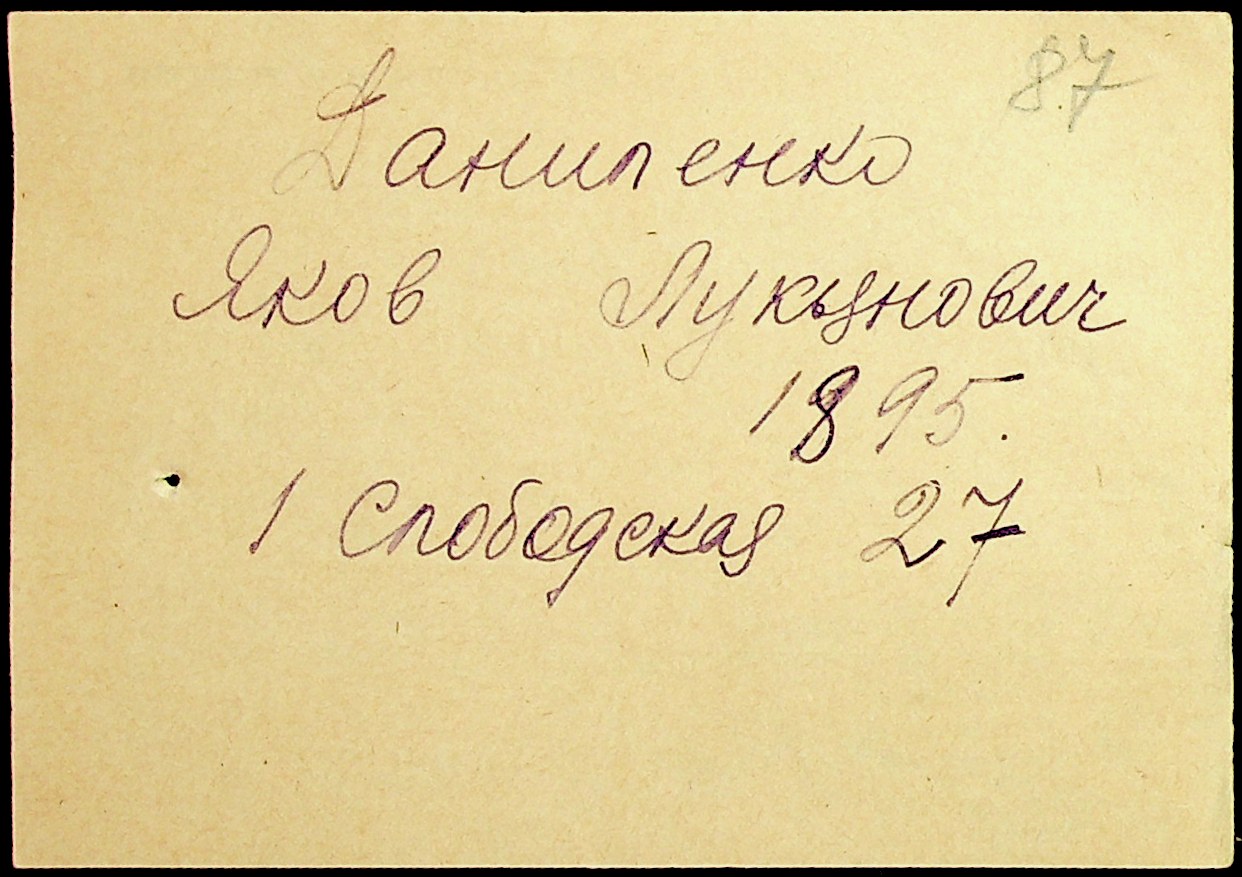 87
Даниленко
Яков Лукьянович
1895.
1 Слободская 27